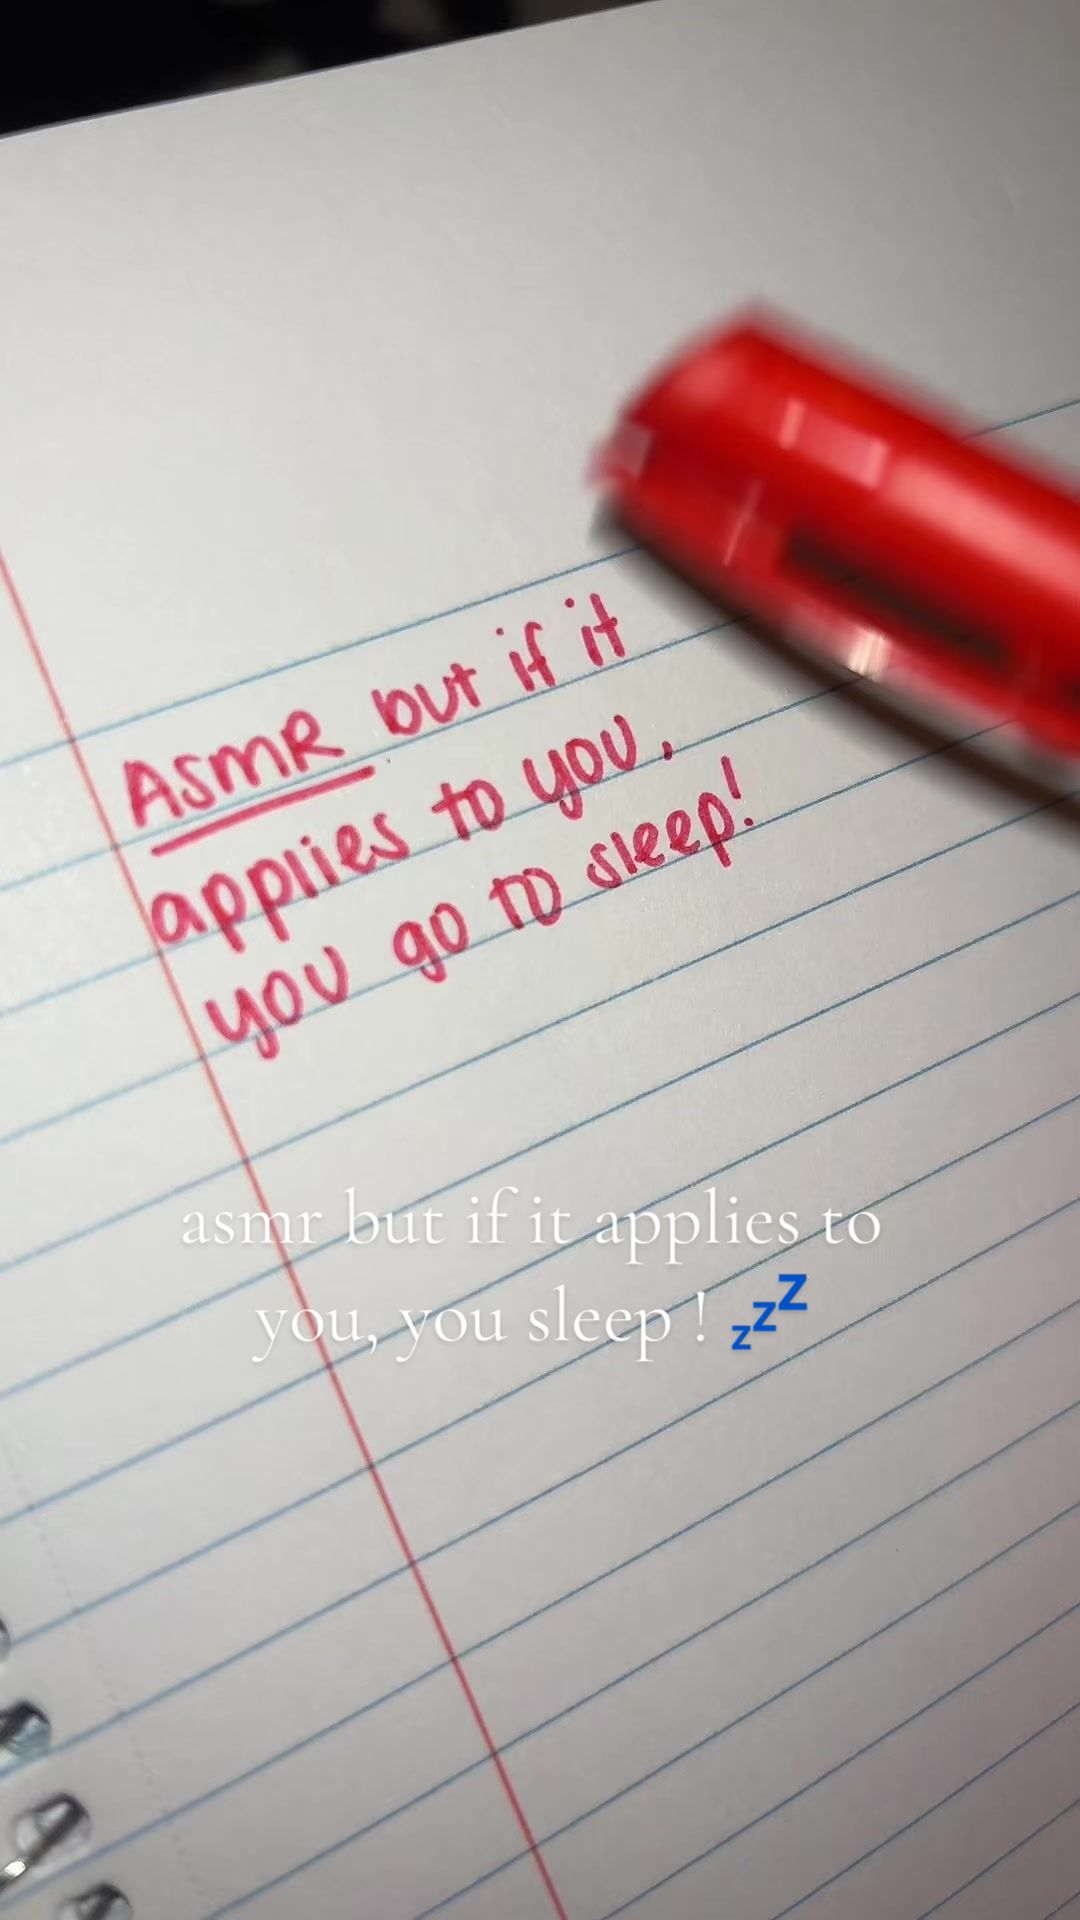 ASMR but if it
applies to you.
you go to sleep!
asmr but if it applies to
you, you sleep ! 💤